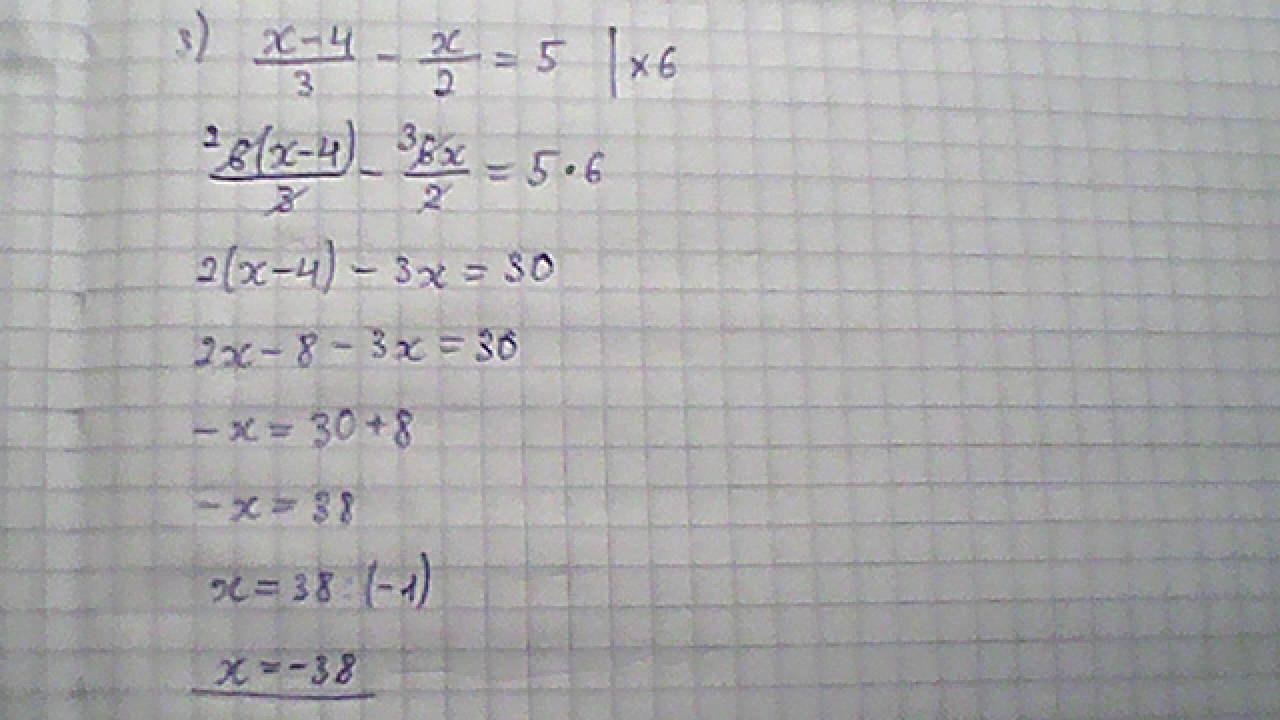 3) (x-4)/3 - x/2 = 5 | ×6
2 6(x-4)/3 - 3 6x/2 = 5·6
2(x-4) - 3x = 30
2x - 8 - 3x = 30
-x = 30+8
-x = 38
x = 38:(-1)
x = -38